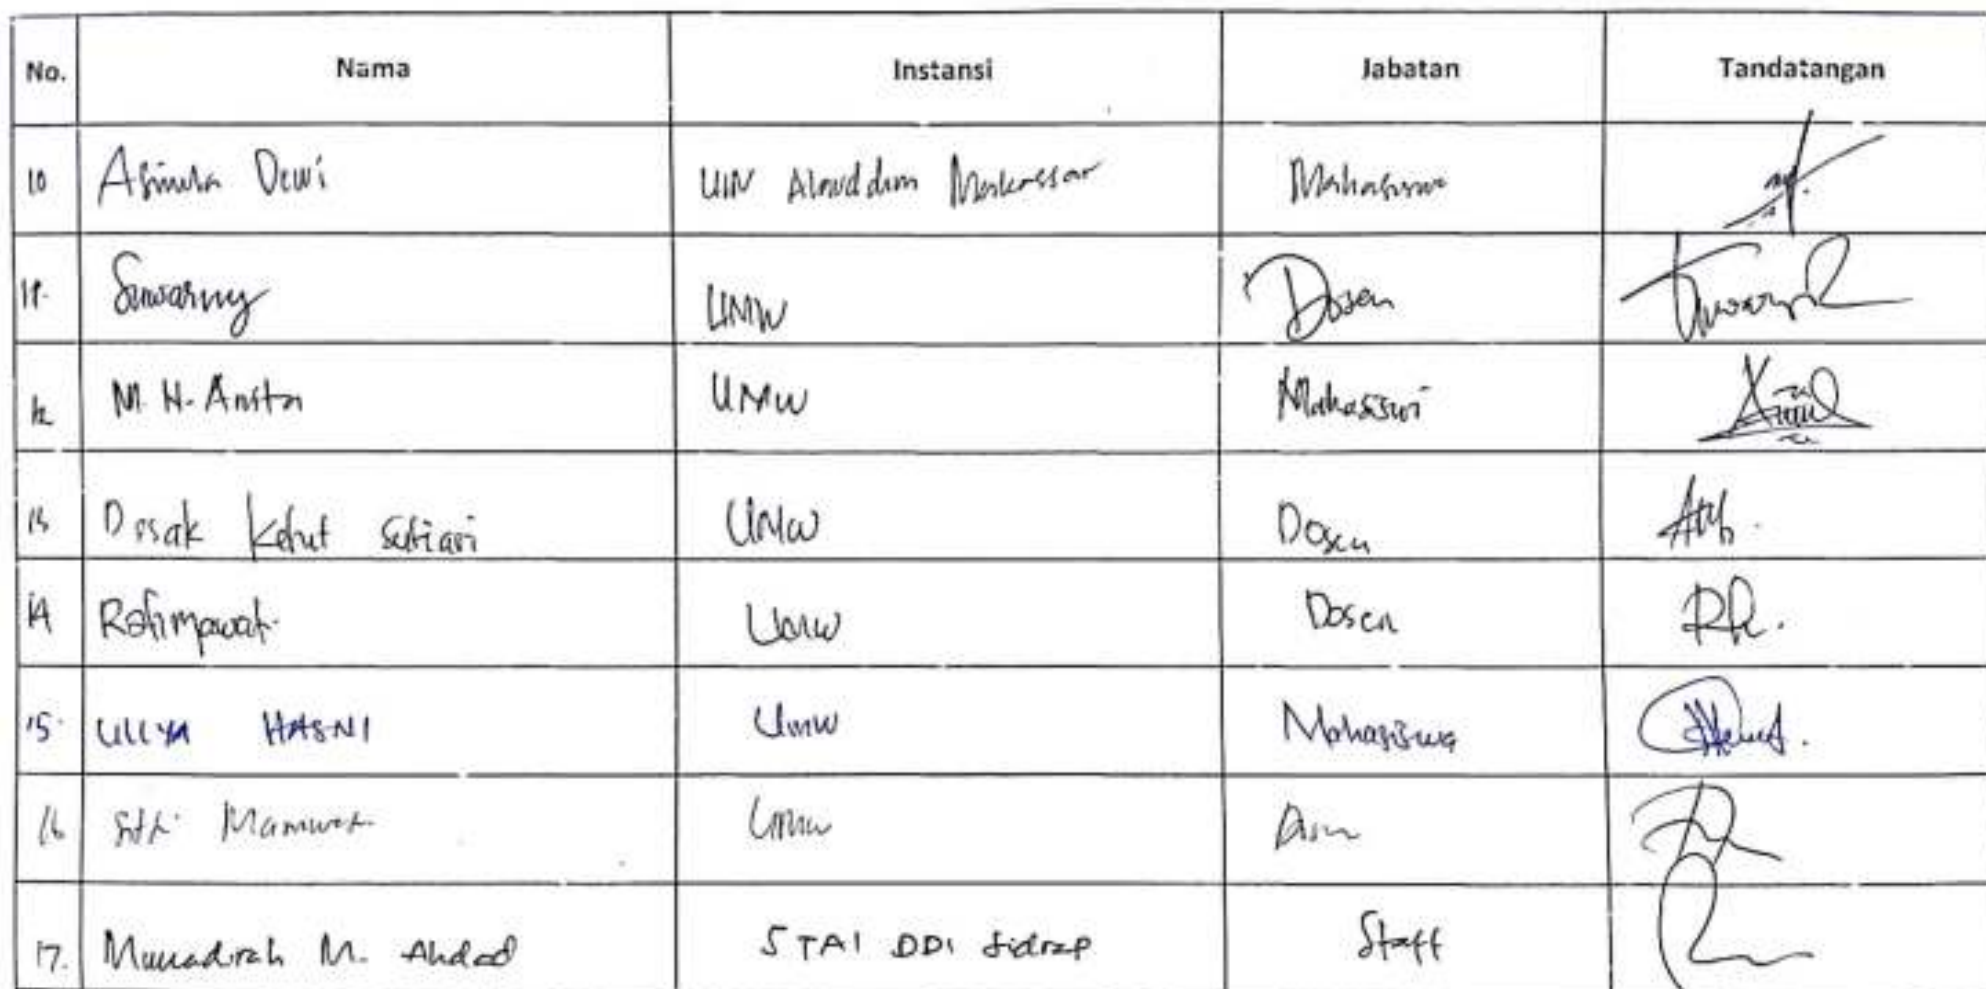 No. Nama Instansi Jabatan Tandatangan
10 Asmula Dewi UIN Alauddin Makassar Mahasiswa
11. Suwarny UMW Dosen
12 M. H. Anita UMW Mahasiswi
13 Desak Ketut Sutiari UMW Dosen
14 Rahmawati UMW Dosen
15. ULLYA HASNI UMW Mahasiswa
16 Sitti UMW Dosen
17. Munadirah M. Ahdad STAI DDI Sidrap Staff